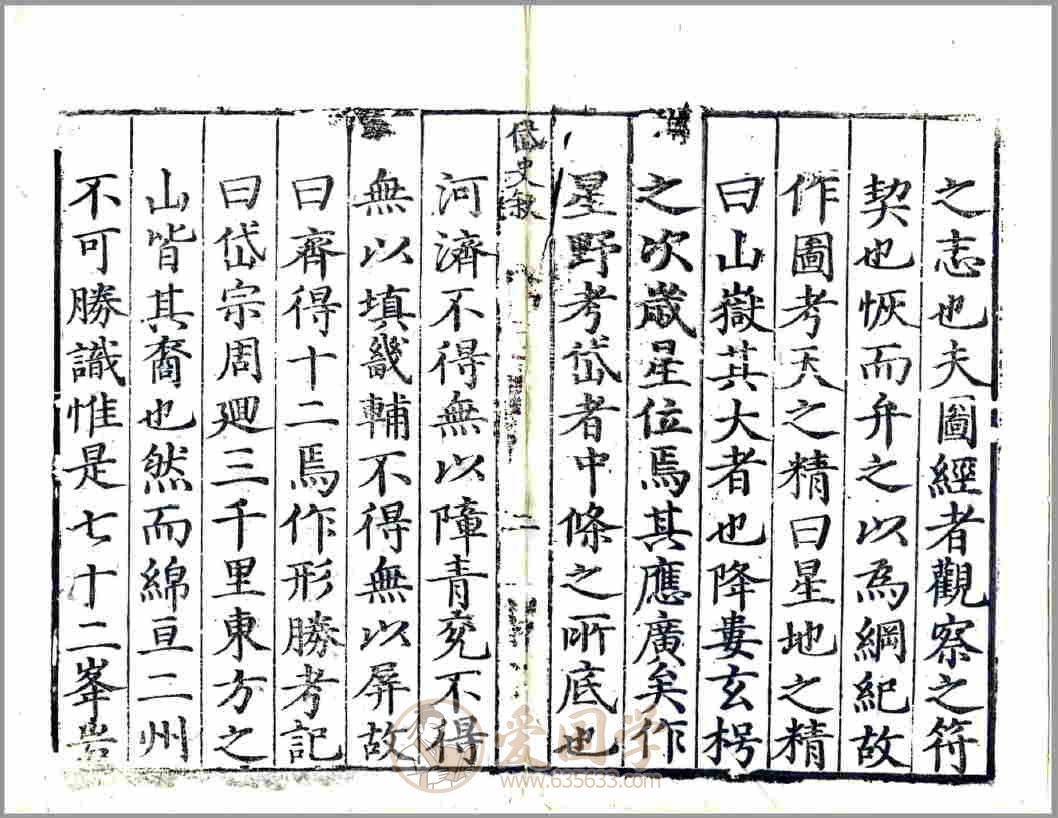 之志也夫圖經者觀察之符
契也恢而弁之以為綱紀故
作圖考天之精曰星地之精
曰山嶽其大者也降婁玄枵
之次歲星位焉其應廣矣作
星野考岱者中條之所底也
岱史敘
二
河濟不得無以障青兗不得
無以填畿輔不得無以屏故
曰齊得十二焉作形勝考記
曰岱宗周廻三千里東方之
山皆其裔也然而綿亘二州
不可勝識惟是七十二峯
爱国学
www.635633.com